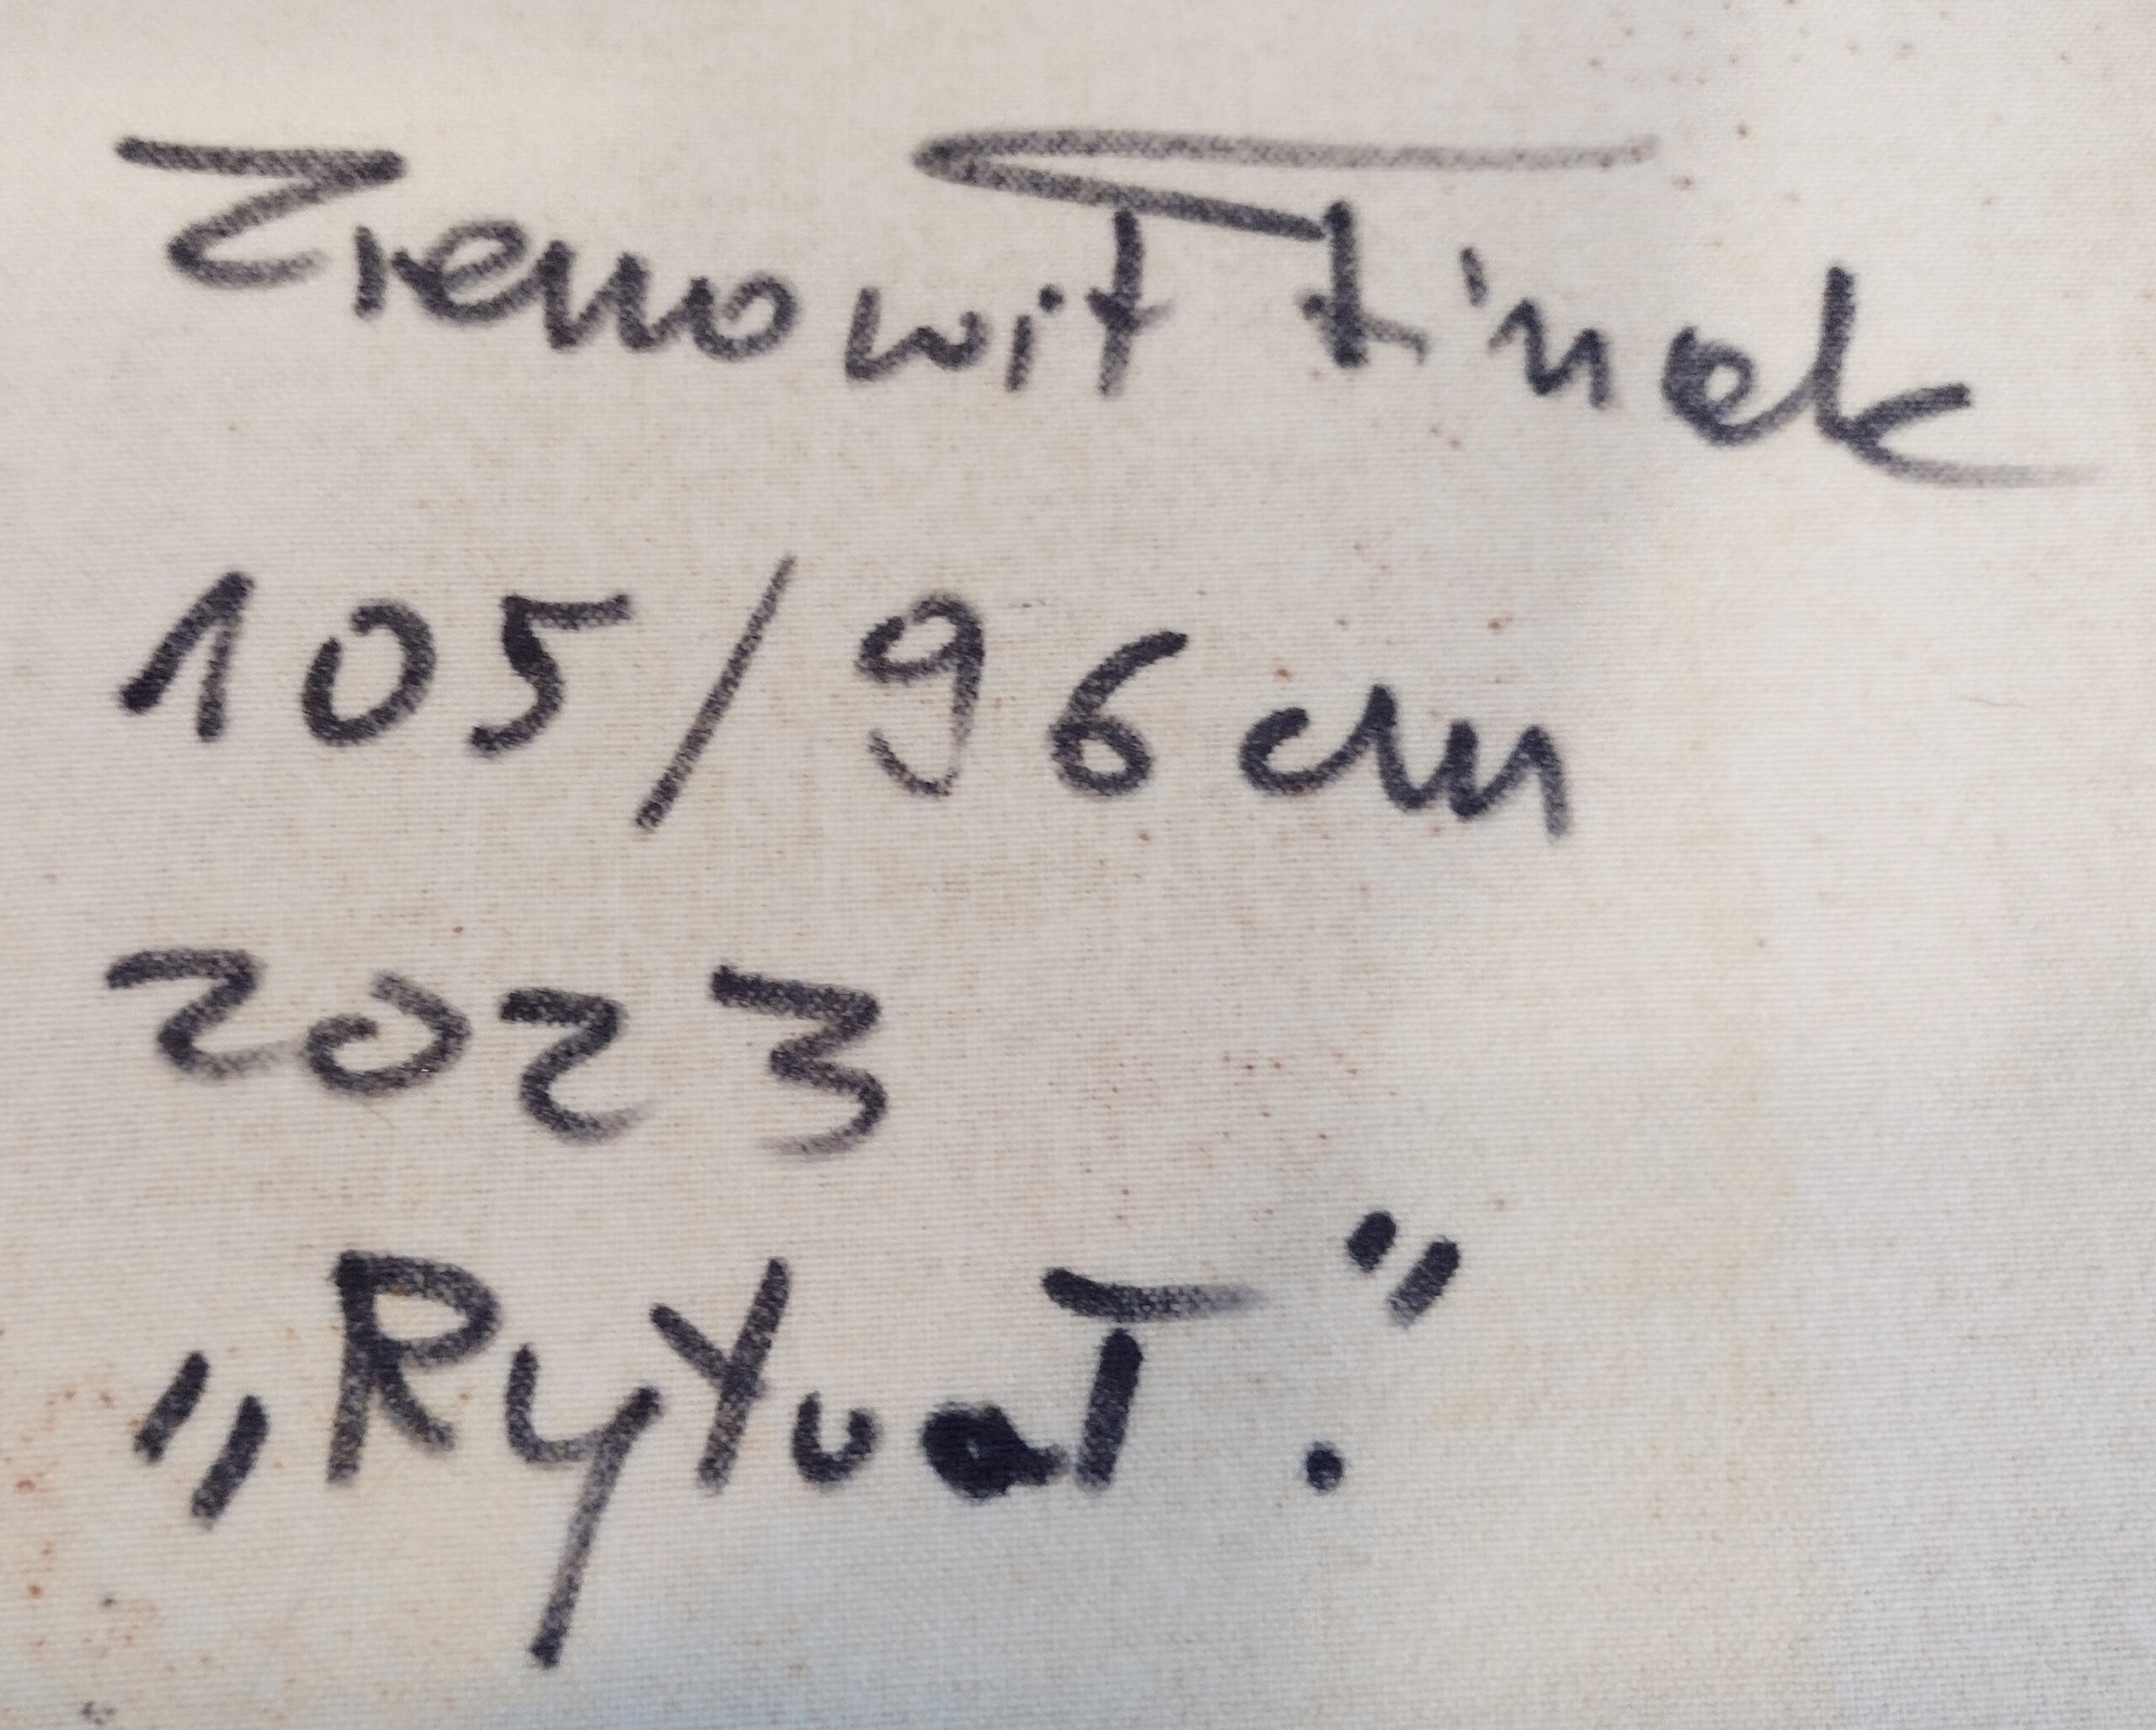 Ziemowit Fincek
105/96 cm
2023
„Rytuał."